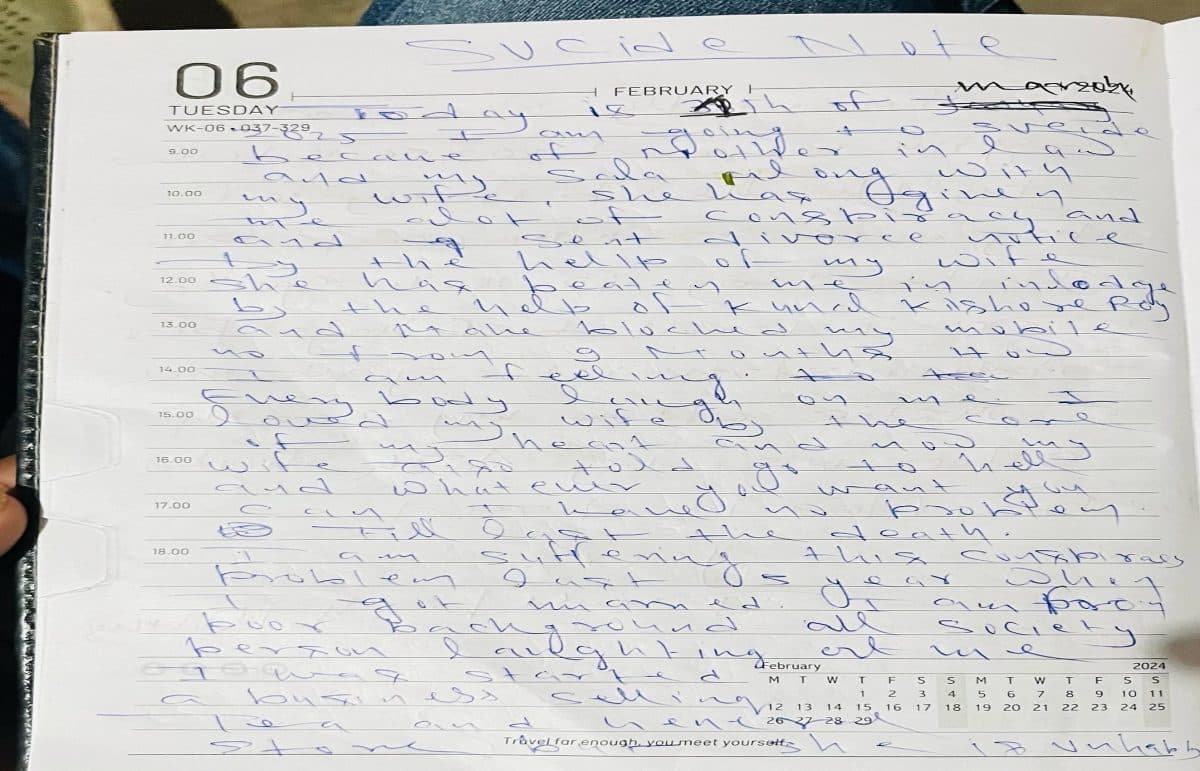 Sucide Note
06
FEBRUARY
TUESDAY
Today is th of march
WK-06 • 037-329
2025 I am going to sucide
9.00
becaue of mother in law
and my Sala along with
10.00
my wife, she has given
me alot of conspiracy and
11.00
and sent divorce notice
by the help of my wife
12.00
she has beaten me in
by the help of Kund Kishore Roy
13.00
and blocked my mobile
no from 9 months How
14.00
I am feeling. to
Every body laugh on me I
15.00
loved my wife by the core
of my heart and now my
16.00
wife also told go to hell
and whatever you want you
17.00
can I have no problem.
Till last the death.
18.00
I am suffering this conspiracy
problem last 05 year when
I got married. I am from
poor background all society
person laughting at me
February 2024
M T W T F S S M T W T F S S
1 2 3 4 5 6 7 8 9 10 11
12 13 14 15 16 17 18 19 20 21 22 23 24 25
26 27 28 29
I was started
a business selling
tea and
Travel far enough, you meet yourself
store but she is unhappy